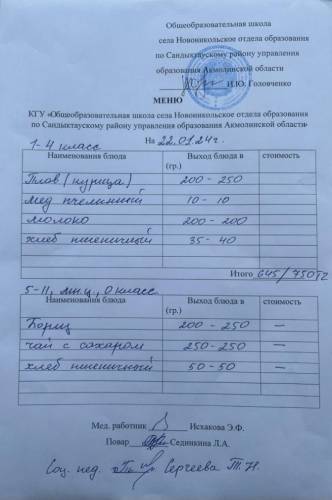 Общеобразовательная школа
села Новоникольское отдела образования
по Сандыктаускому району управления
образования Акмолинской области
И.Ю. Головченко
МЕНЮ
КГУ «Общеобразовательная школа села Новоникольское отдела образования
по Сандыктаускому району управления образования Акмолинской области»
1-4 класс
На 22.01.24г.
Наименования блюда Выход блюда в (гр.) стоимость
Плов (курица) 200 - 250
Мед пчелинный 10 - 10
Молоко 200 - 200
хлеб пшеничный 35 - 40
Итого 645/750тг
5-11, 0 класс
Наименования блюда Выход блюда в (гр.) стоимость
Борщ 200 - 250 —
чай с сахаром 250 - 250 —
хлеб пшеничный 50 - 50 —
Мед. работник Исхакова Э.Ф.
Повар Сединкина Л.А.
Соц. пед. Сергеева Т.Н.